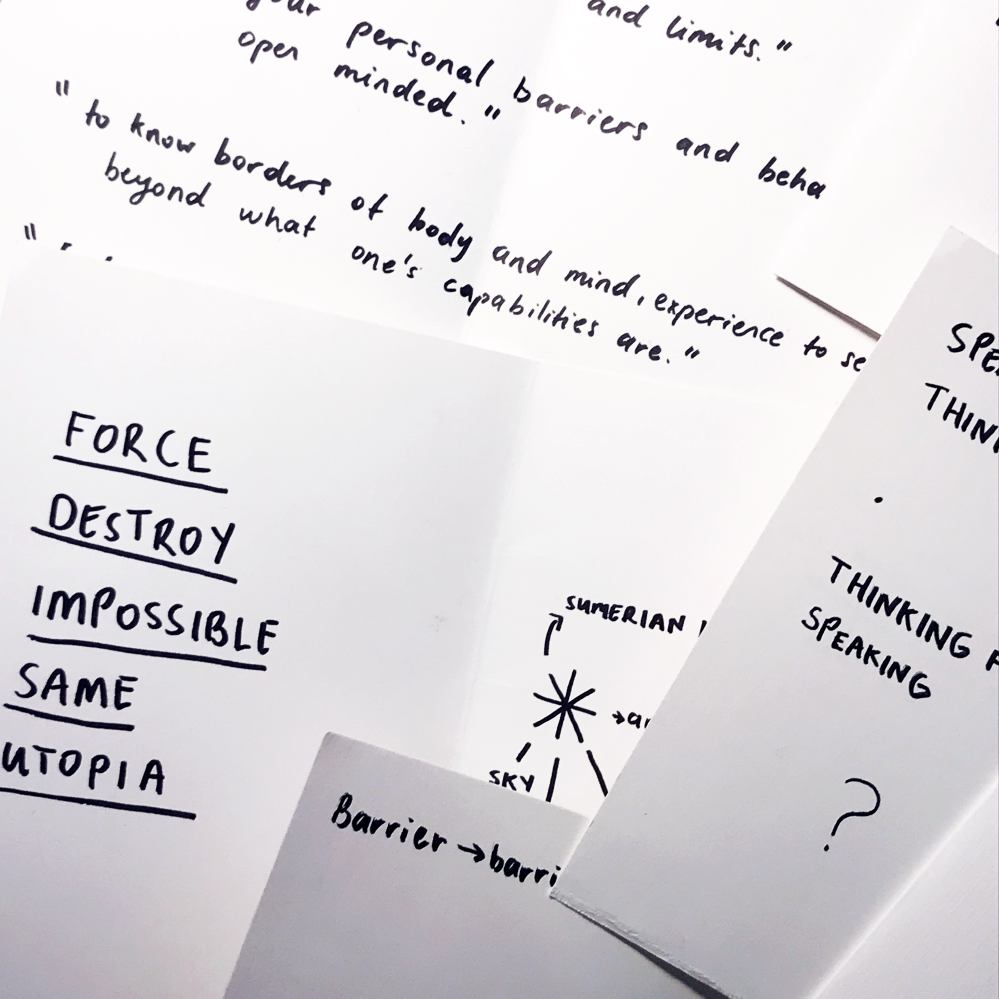 and limits."
your personal barriers and beha
open minded."
"to know borders of body and mind, experience to se
beyond what one's capabilities are."
"
FORCE
DESTROY
IMPOSSIBLE
SAME
UTOPIA
SUMERIAN
→ar
SKY
Barrier → barri
SPEA
THIN
.
THINKING
SPEAKING
?